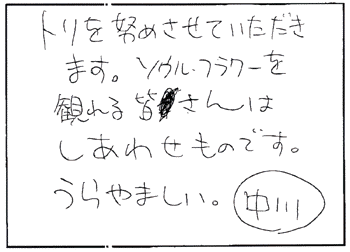 トリを努めさせていただき
ます。ソウル・フラワーを
観れる皆さんは
しあわせものです。
うらやましい。 中川